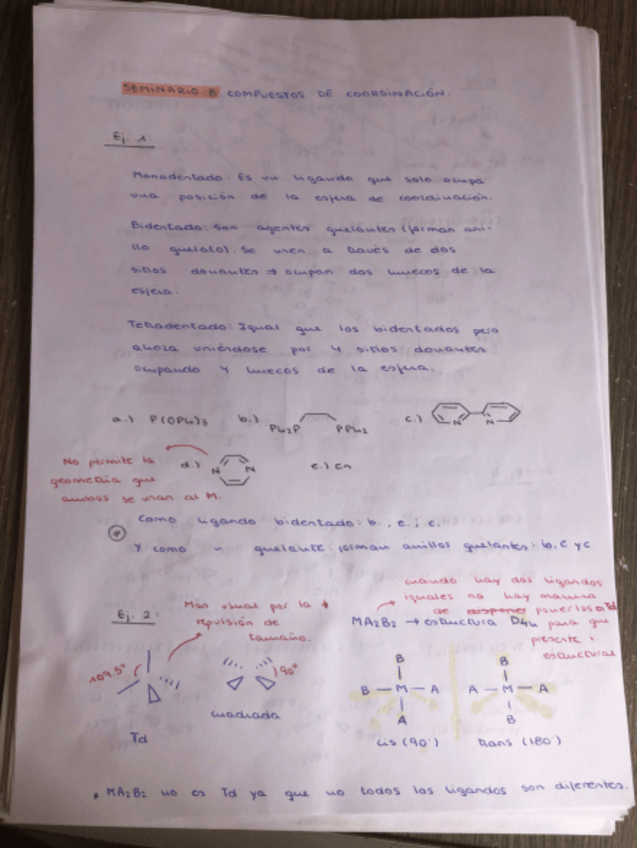 SEMINARIO 8 COMPUESTOS DE COORDINACIÓN.
Ej. 1:
Monodentado: Es un ligando que solo ocupa
una posición de la esfera de coordinación.
Bidentado: Son agentes quelantes (forman ani-
llo quelato). Se unen a través de dos
sitios donantes → ocupan dos huecos de la
esfera.
Tetradentado: Igual que los bidentados pero
ahora uniéndose por 4 sitios donantes
ocupando 4 huecos de la esfera.
a.) P(OPh)3 b.) Ph2P PPh2 c.) N N
No permite la
geometría que
ambos se unan al M.
d.) N N e.) en
Como ligando bidentado: b., e.; c.
Y como quelante forman anillos quelantes: b, e y c
Ej. 2:
Más usual por la ↓
repulsión de
tamaño.
cuando hay dos ligandos
iguales no hay manera
de disponer ponerlos en Td
para que
presente
estructuras
MA2B2 → estructura D4h
109.5°
Td
90°
cuadrada
B
B - M - A
A
cis (90°)
B
A - M - A
B
trans (180°)
* MA2B2 no es Td ya que no todos los ligandos son diferentes.